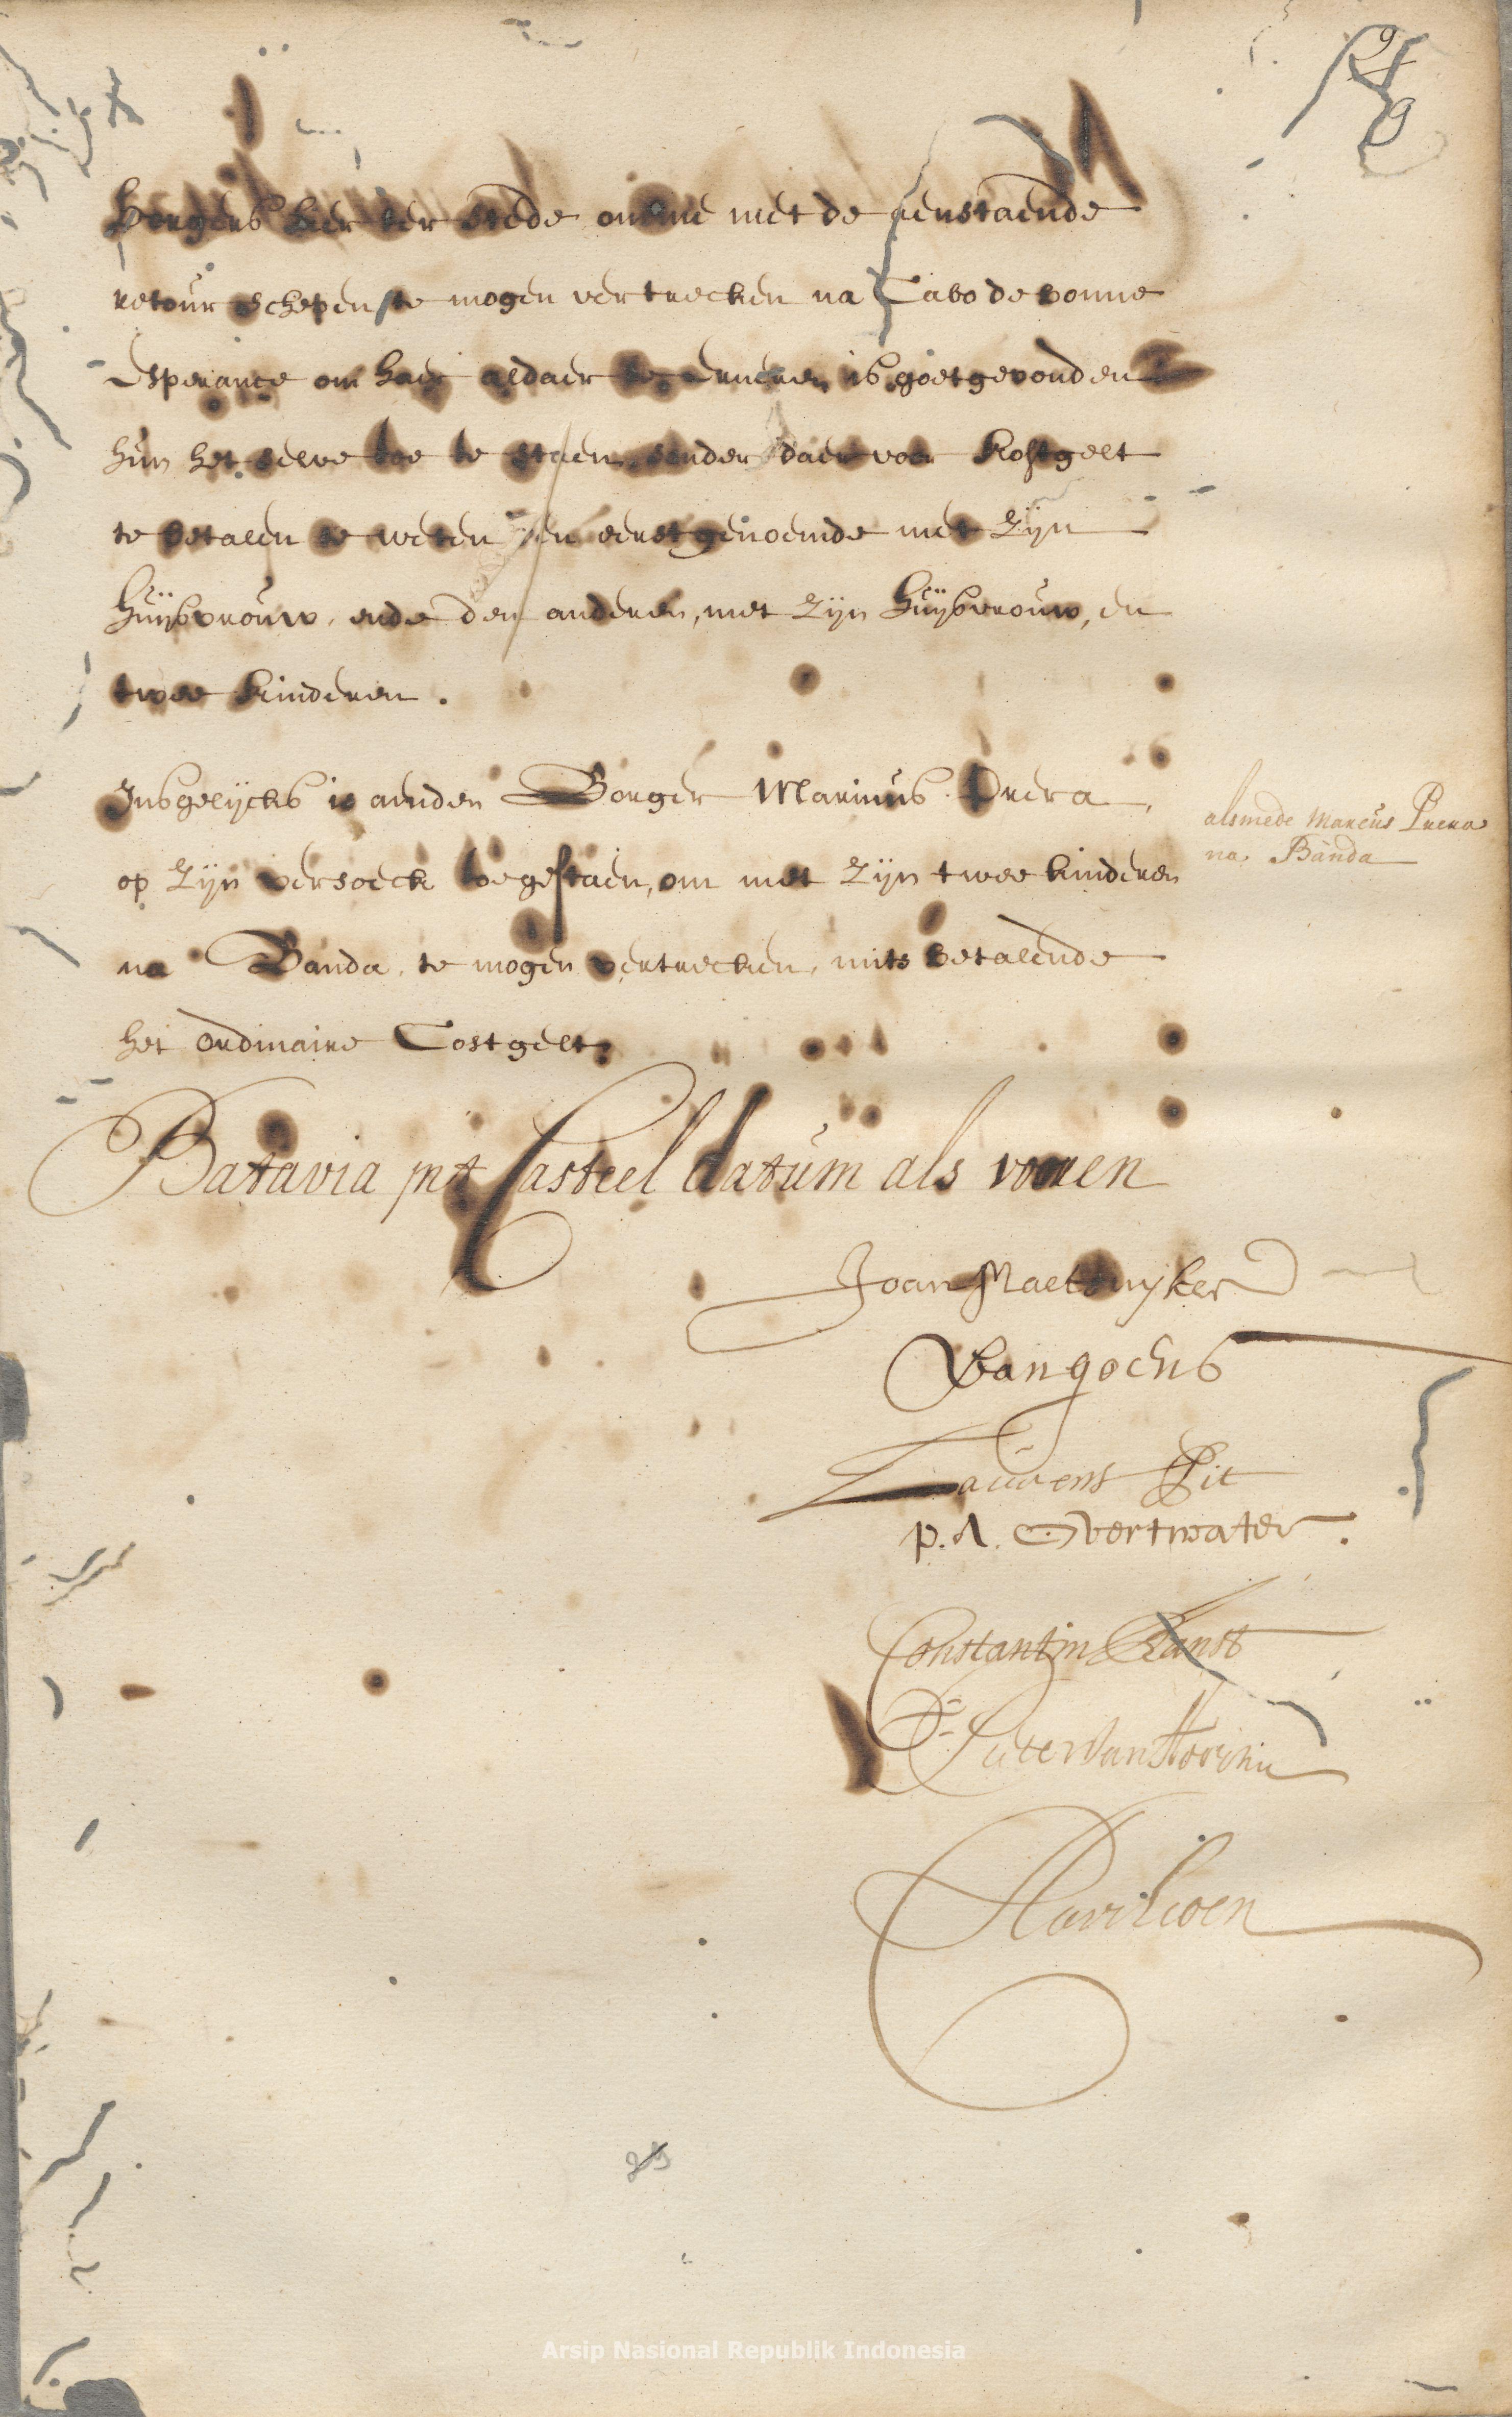 borgers hier ter stede omme met de aenstaende
retour schepen te mogen vertrecken na Cabo de bonne
Esperance om haer aldaer te erneren is goet gevonden
hun het selve toe te staen, sonder daer voor kostgelt
te betalen te weten den eerstgenoemde met zijn
huijsvrouw, ende den anderen, met zijn huijsvrouw, en
twee kinderen.
Insgelijcks is aenden Borger Marcus Prera,
alsmede Marcus Prera
na Banda
op zijn versoeck toegestaen, om met zijn twee kinderen
na Banda, te mogen vertrecken, mits betalende
het ordinaire Costgelt.
Batavia int Casteel datum als vooren
Joan Maetsuyker
van goens
Laurens Pit
p. A. Overtwater.
Constantin Ranst
Pieter van Hoorn
Pavilioen
Arsip Nasional Republik Indonesia